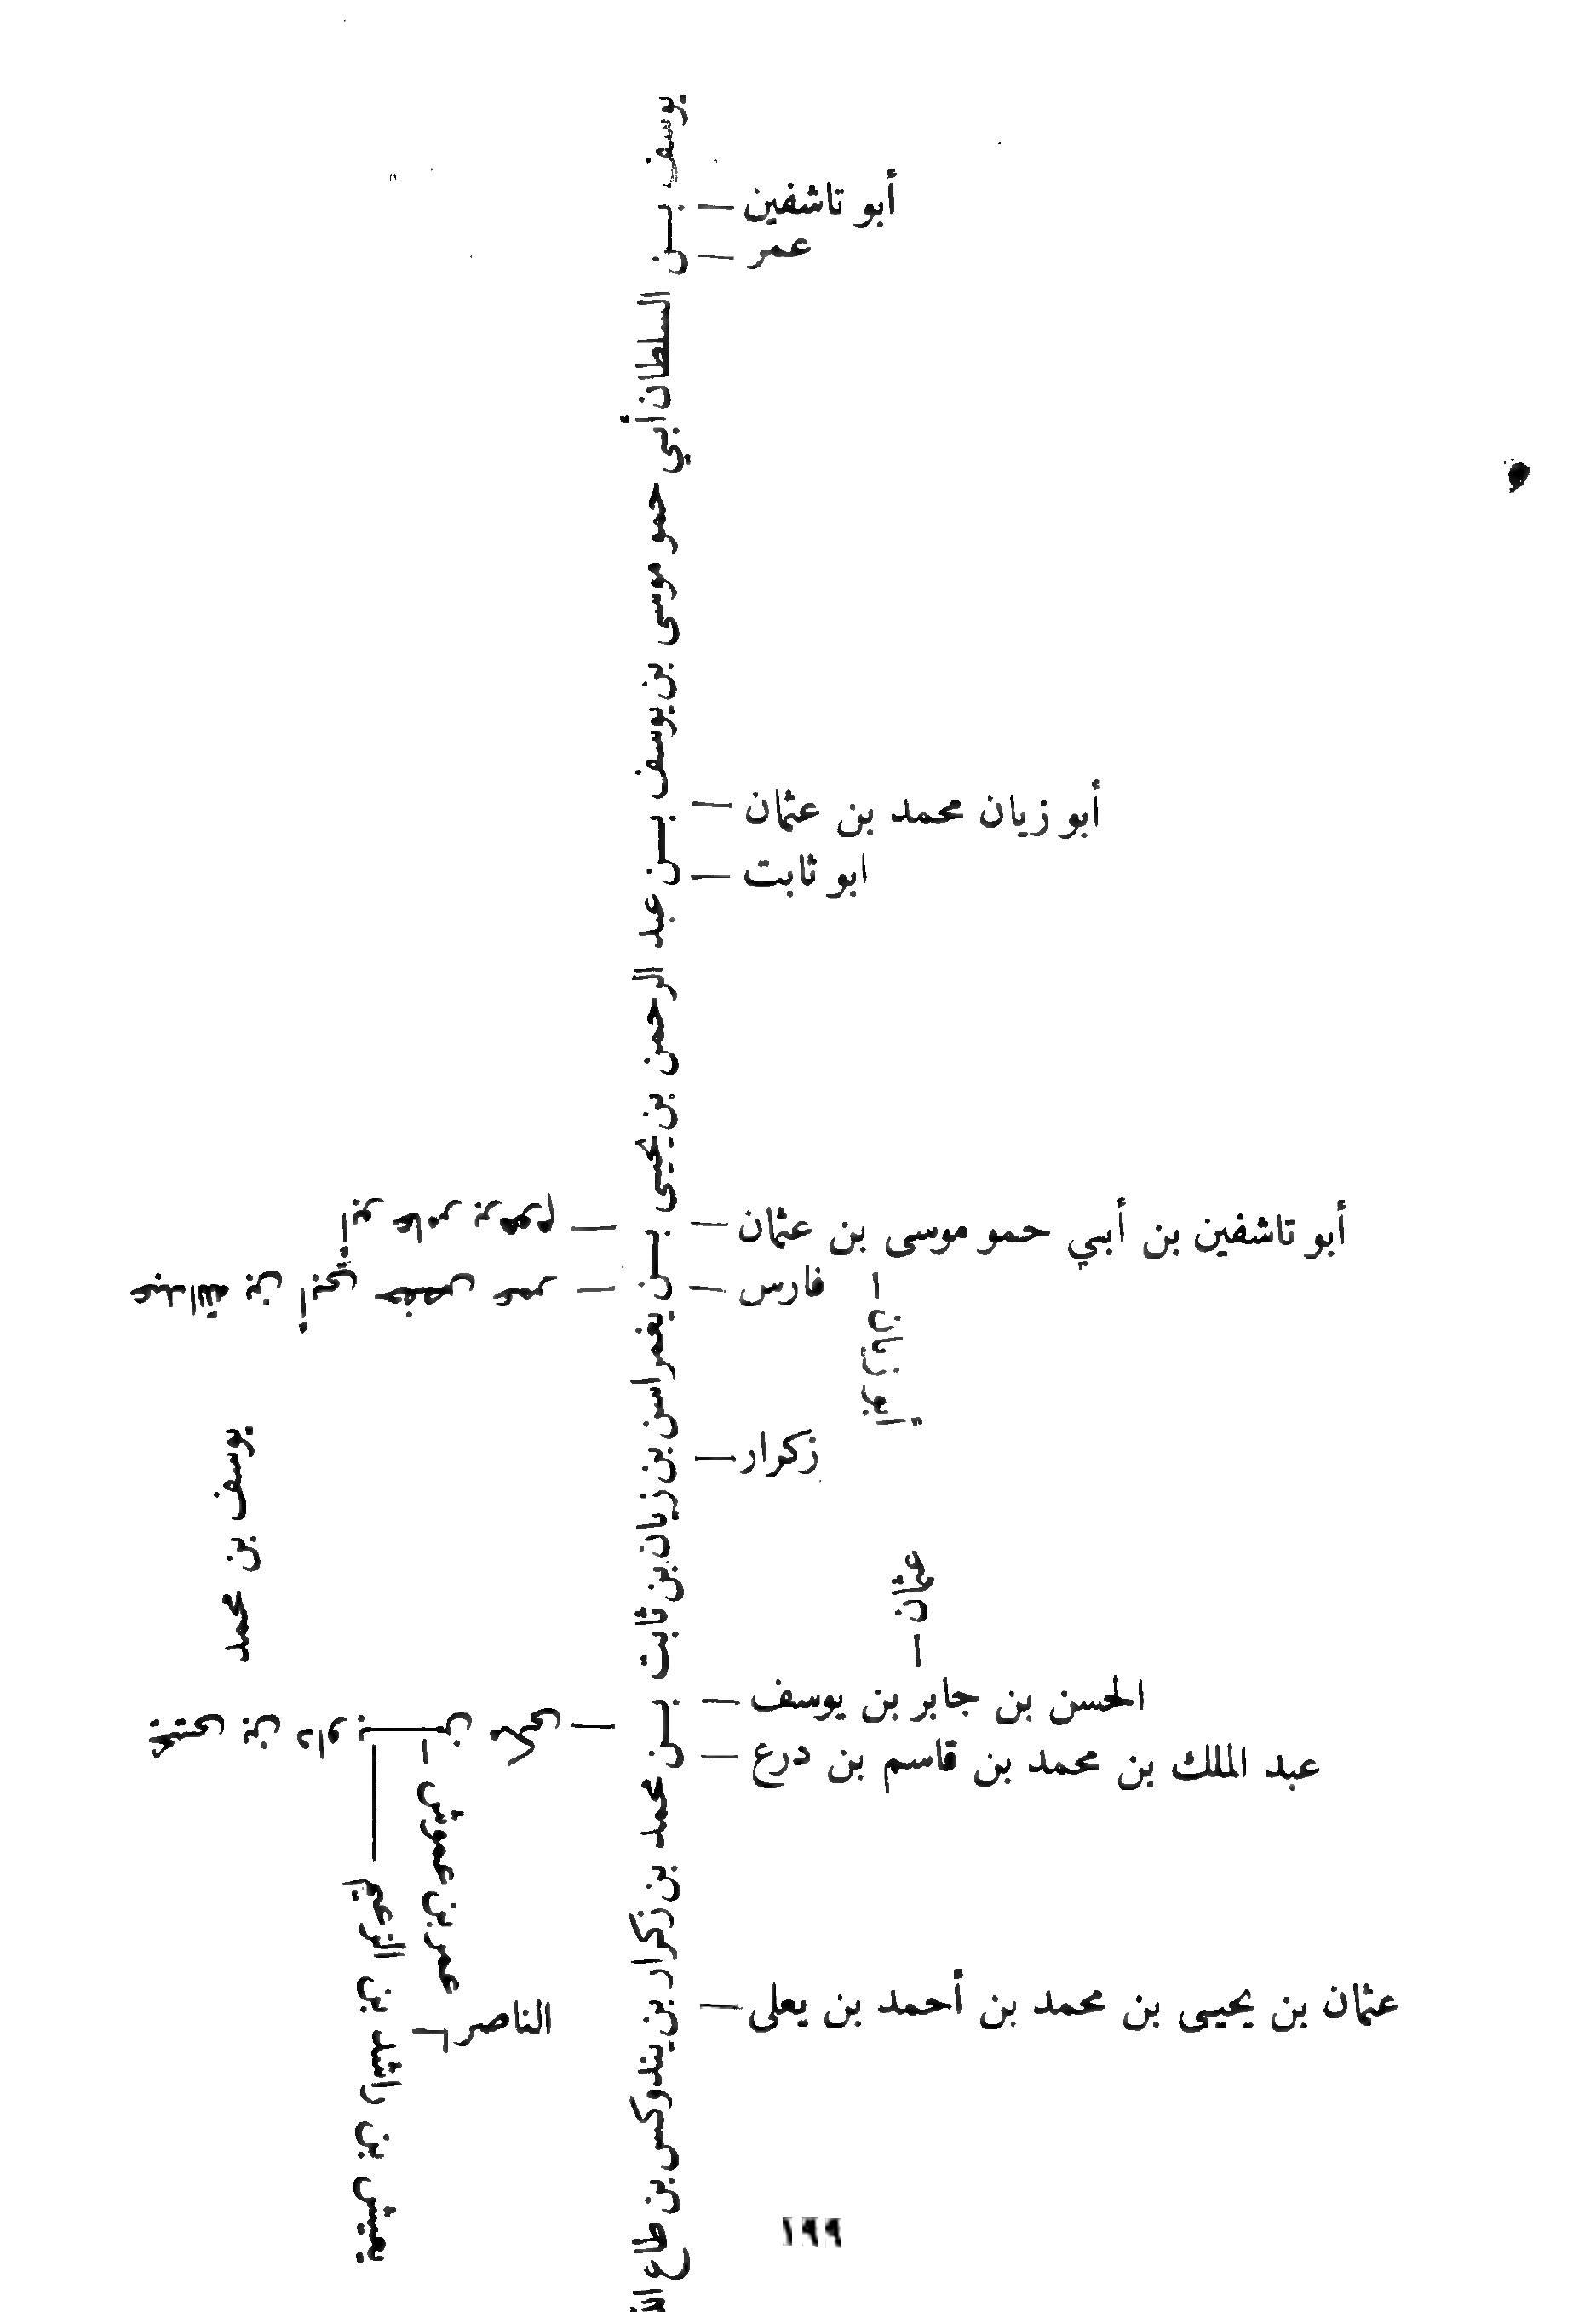 يوسف بن السلطان أبي حمو موسى بن يوسف بن عبد الرحمن بن يحيى بن يغمراسن بن زيان بن ثابت بن محمد بن زكرار بن يندوكس بن طاع
أبو تاشفين
عمر
أبو زيان محمد بن عثمان
ابو ثابت
أبو تاشفين بن أبي حمو موسى بن عثمان
فارس
أبو زيان
زكرار
عثمان
الحسن بن جابر بن يوسف
عبد الملك بن محمد بن قاسم بن درع
عثمان بن يحيى بن محمد بن أحمد بن يعلى
أبو عامر برهوم
عبدالله بن أبي حفص عمر
يوسف بن محمد
بن داود بن مكن
عمر بن عموش
الناصر
بن راشد بن الزعيم
١٩٩